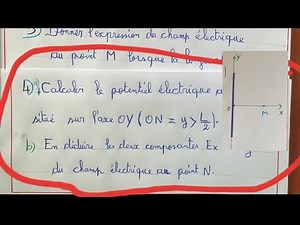 3) Donner l'expression du champ électrique
au point M lorsque la
4) a) Calculer le potentiel électrique a
situé sur l'axe OY (ON = y > L/2).
b) En déduire les deux composantes Ex
du champ électrique au point N.
y
O
M
x